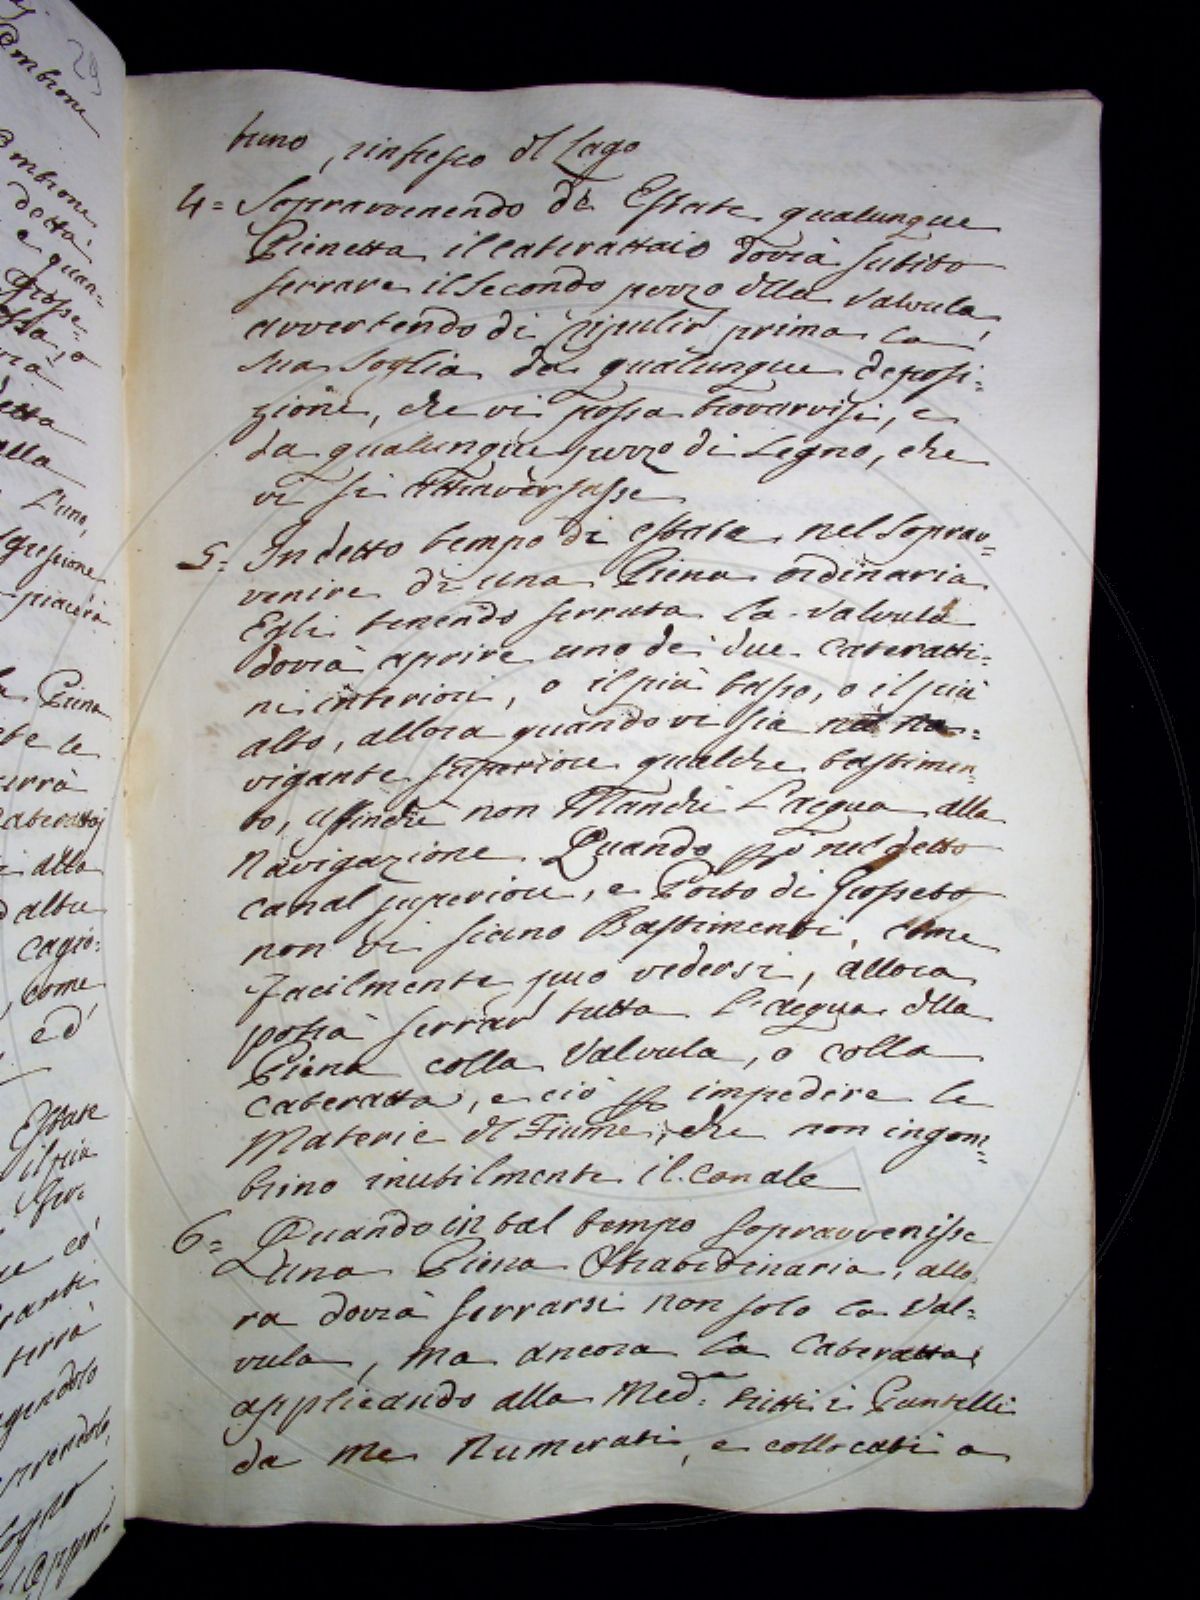 Ombrone
29
Ombrone
detta
e quan=
Grosse=
o
detta
alla
L'uno,
piacerà
la Piena
le
Cateratta
alla
altre
cagio:
come
ed'
Estate
il più
co'
terrà
prendolo,
Legno
tuno, rinfresco dl Lago
4= Sopravvenendo di Estate qualunque
Pienetta il caterattaio dovrà subito
serrare il secondo pezzo dlla Valvula,
avvertendo di ripulir' prima la
sua soglia da qualunque deposi=
zione, che vi possa trovarvisi, e
da qualunque pezzo di Legno, che
vi si attraversasse
5= In detto tempo di estate nel soprav=
venire di una Piena ordinaria
Egli tenendo serrata la Valvula
dovrà aprire uno dei due cateratti=
ni interiori, o il più basso, o il più
alto, allora quando vi sia nel na=
vigante superiore qualche bastimen=
to, affinchè non Manchi l'acqua alla
Navigazione Quando poi nel detto
canal superiore, e Porto di Grosseto
non vi siano Bastimenti, come
facilmente può vedersi, allora
potrà serrar' tutta l'acqua dlla
Piena colla Valvula, o colla
cateratta, e ciò p impedire le
Materie dl Fiume, che non ingom=
brino inutilmente il Canale
6= Quando in tal tempo sopravvenisse
una Piena Straordinaria, allo
ra dovrà serrarsi non solo la Val=
vula, Ma ancora la Cateratta
applicando alla Med.a tutti i Puntelli
da Me Numerati, e collocati a